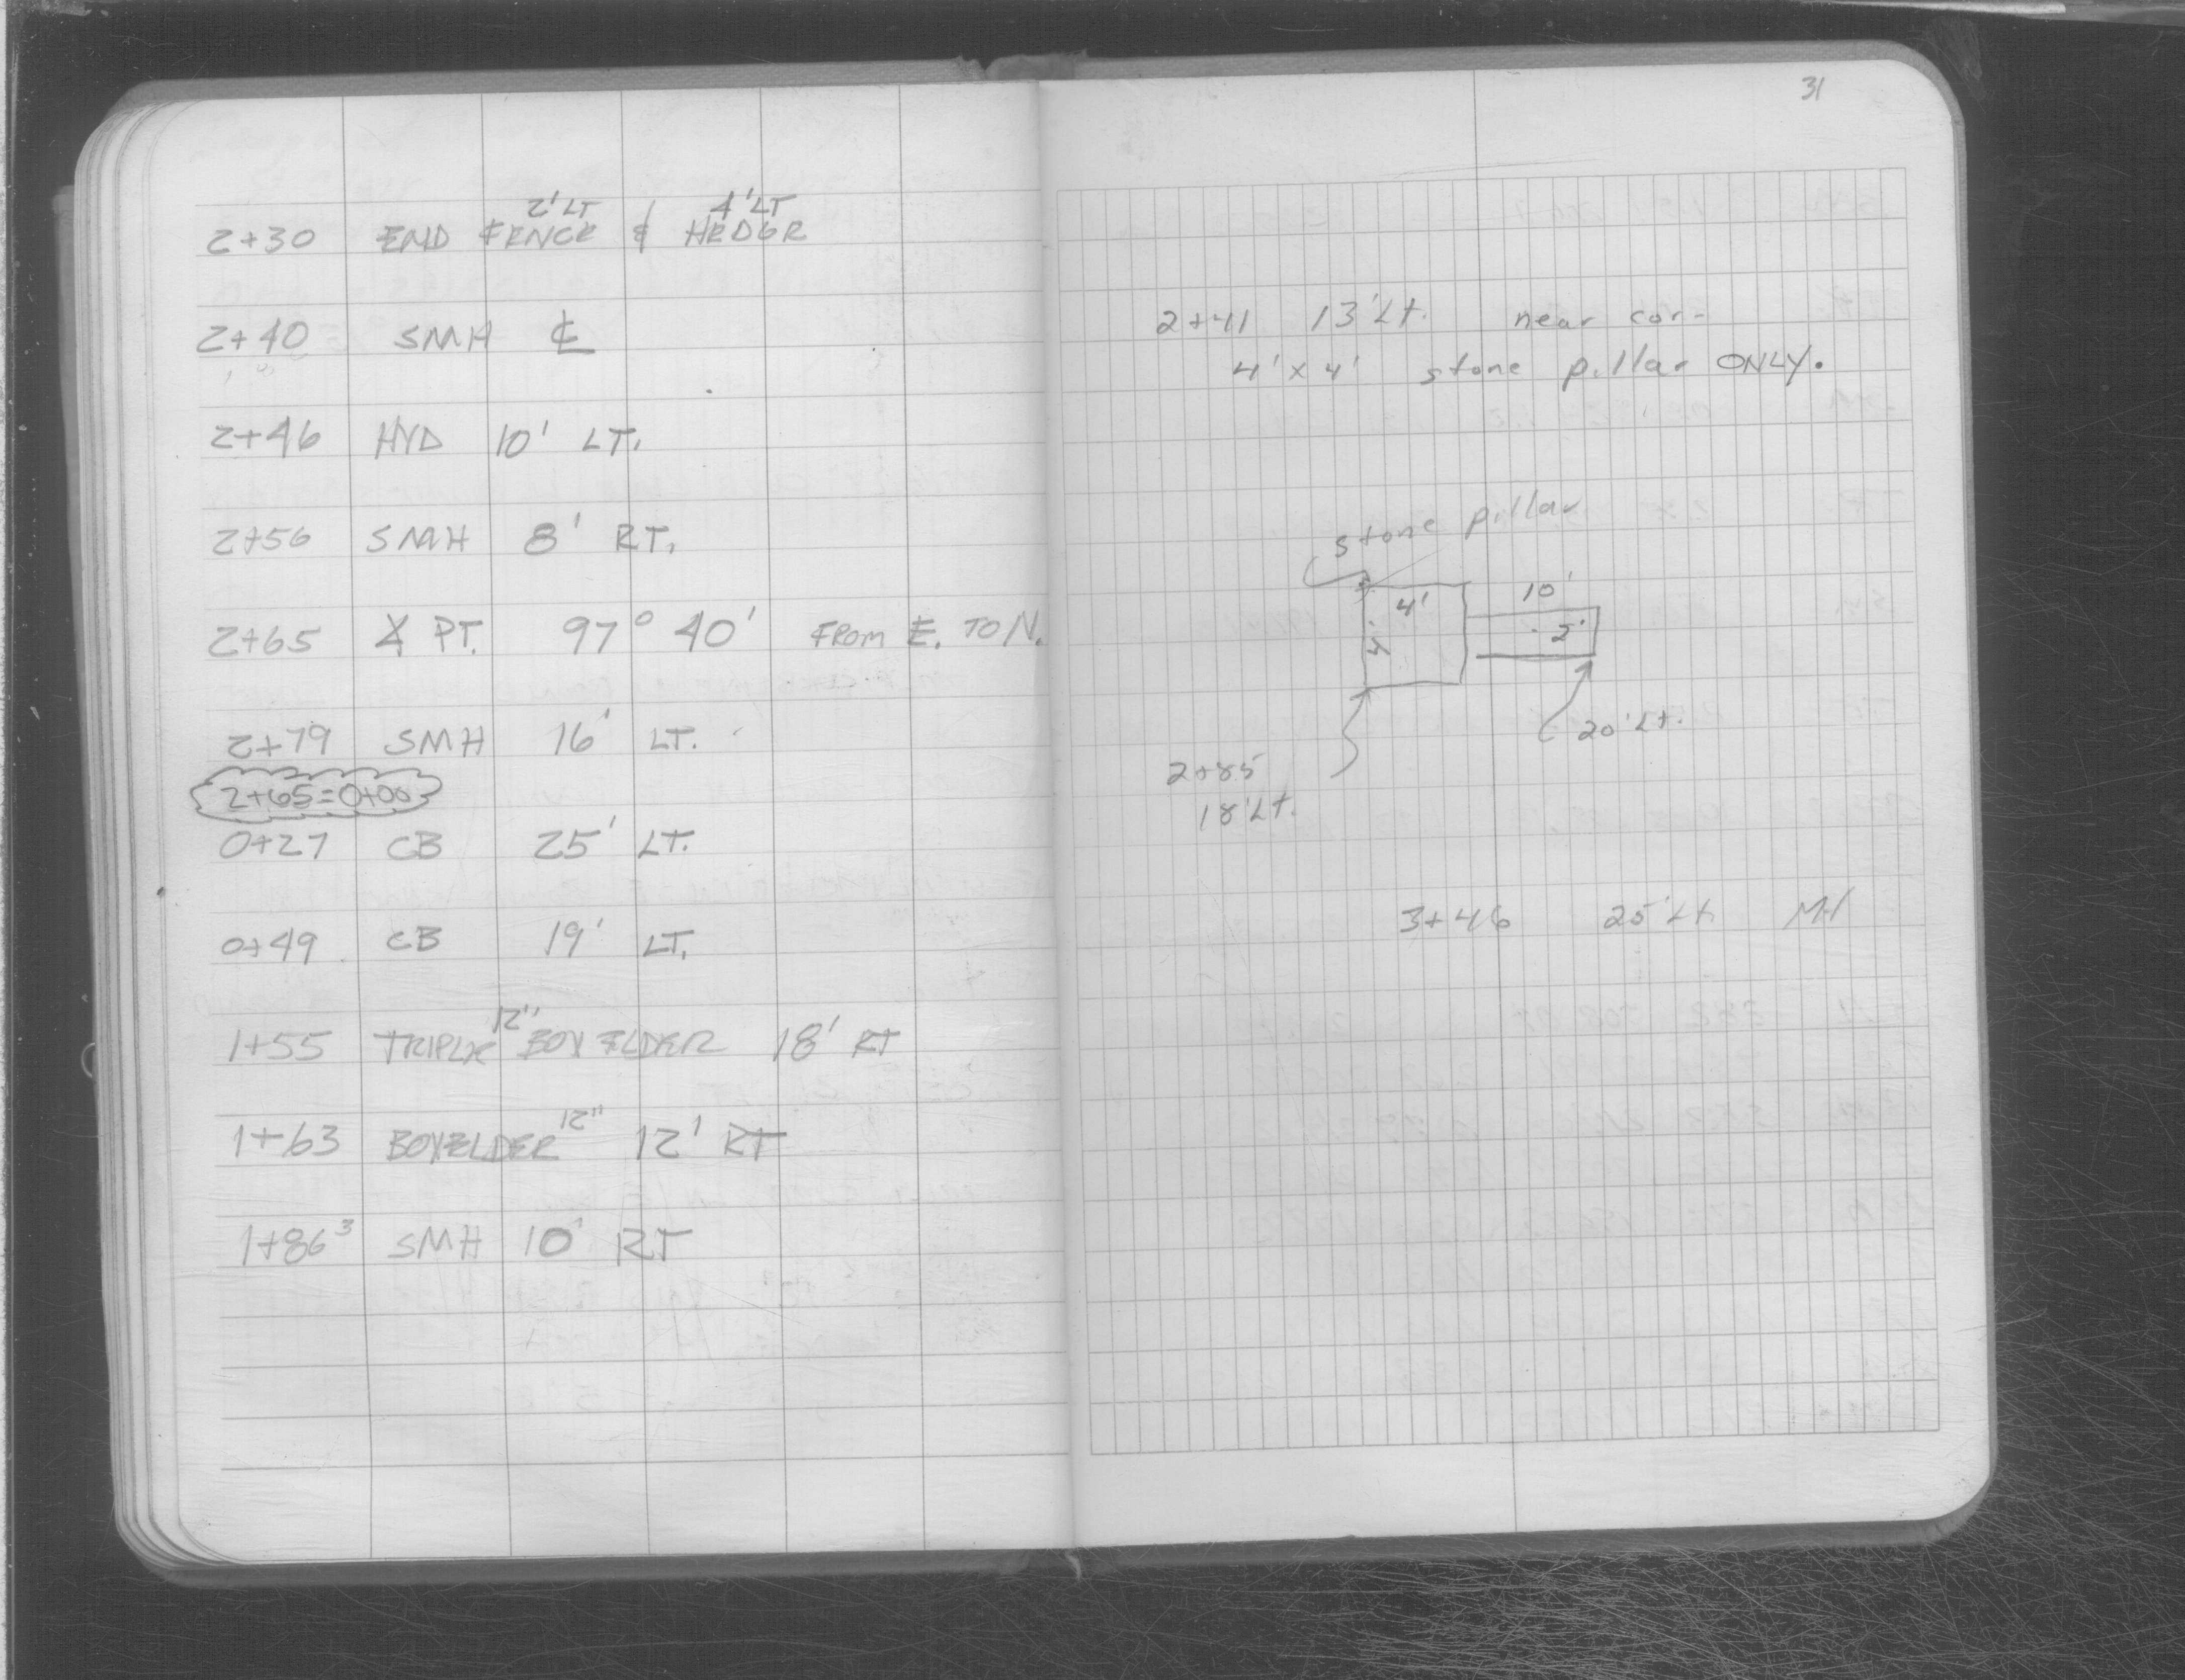 2+30 END FENCE 2' LT & HEDGE 4' LT
2+40 SMH ℄
2+46 HYD 10' LT.
2+56 SMH 8' RT.
2+65 ∡ PT. 97° 40' FROM E. TO N.
2+79 SMH 16' LT.
2+65=0+00
0+27 CB 25' LT.
0+49 CB 19' LT.
1+55 TRIPLE 12" BOXELDER 18' RT
1+63 BOXELDER 12" 12' RT
1+86³ SMH 10' RT
31
2+41 13' Lt. near cor-
4' x 4' stone pillar ONLY.
stone pillar
4' 10'
4' 2'
20' Lt.
2+85
18' Lt.
3+46 25' Lt. MH